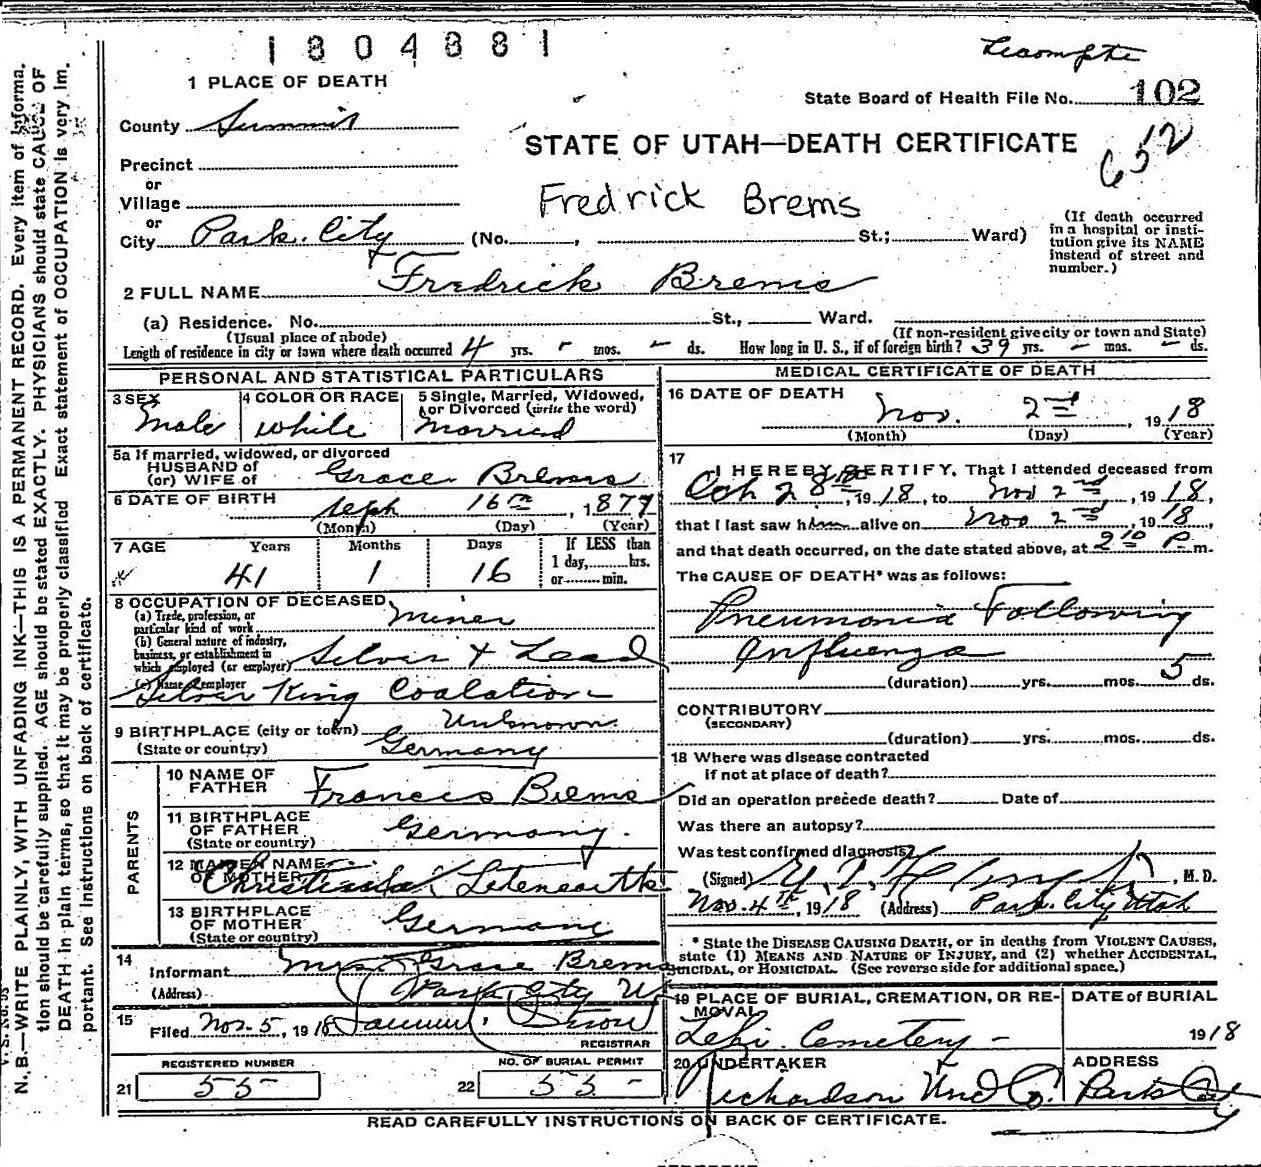 1804881
Lecompte
1 PLACE OF DEATH
State Board of Health File No. 102
County Summit
STATE OF UTAH—DEATH CERTIFICATE
652
Precinct
or
Village
Fredrick Brems
or
City Park City (No. , St.; Ward)
(If death occurred in a hospital or insti-
tution give its NAME
instead of street and
number.)
2 FULL NAME Fredrick Brems
(a) Residence. No. St., Ward.
(Usual place of abode) (If non-resident give city or town and State)
Length of residence in city or town where death occurred 4 yrs. - mos. - ds. How long in U. S., if of foreign birth? 39 yrs. - mos. - ds.
PERSONAL AND STATISTICAL PARTICULARS
3 SEX Male
4 COLOR OR RACE white
5 Single, Married, Widowed,
or Divorced (write the word)
Married
5a If married, widowed, or divorced
HUSBAND of
(or) WIFE of Grace Brems
6 DATE OF BIRTH Sept 16th, 1877
(Month) (Day) (Year)
7 AGE Years Months Days If LESS than
1 day, hrs.
or min.
41 1 16
8 OCCUPATION OF DECEASED
(a) Trade, profession, or
particular kind of work miner
(b) General nature of industry,
business, or establishment in
which employed (or employer) Silver & Lead
(c) Name of employer Silver King Coalation
9 BIRTHPLACE (city or town) Unknown
(State or country) Germany
PARENTS
10 NAME OF
FATHER Francis Brems
11 BIRTHPLACE
OF FATHER Germany.
(State or country)
12 MAIDEN NAME
OF MOTHER
13 BIRTHPLACE
OF MOTHER Germany
(State or country)
14
Informant Mrs. Grace Brems
(Address) Park City U
15
Filed Nov. 5, 1918
REGISTRAR
REGISTERED NUMBER
21 55-
NO. OF BURIAL PERMIT
22 55-
MEDICAL CERTIFICATE OF DEATH
16 DATE OF DEATH
Nov. 2nd, 1918
(Month) (Day) (Year)
17
I HEREBY CERTIFY, That I attended deceased from
Oct 28th, 1918, to Nov 2nd, 1918,
that I last saw him alive on Nov 2nd, 1918,
and that death occurred, on the date stated above, at 2 10 P. m.
The CAUSE OF DEATH* was as follows:
Pneumonia Following
Influenza
(duration) yrs. mos. 5 ds.
CONTRIBUTORY
(SECONDARY)
(duration) yrs. mos. ds.
18 Where was disease contracted
if not at place of death?
Did an operation precede death? Date of
Was there an autopsy?
Was test confirmed diagnosis?
(Signed) , M. D.
Nov. 4th, 1918 (Address) Park City Utah
* State the DISEASE CAUSING DEATH, or in deaths from VIOLENT CAUSES,
state (1) MEANS AND NATURE OF INJURY, and (2) whether ACCIDENTAL,
SUICIDAL, OR HOMICIDAL. (See reverse side for additional space.)
19 PLACE OF BURIAL, CREMATION, OR RE-
MOVAL
Lehi Cemetery -
DATE of BURIAL
1918
20 UNDERTAKER
Richardson Und Co.
ADDRESS
Park City
READ CAREFULLY INSTRUCTIONS ON BACK OF CERTIFICATE.
N. B.—WRITE PLAINLY, WITH UNFADING INK—THIS IS A PERMANENT RECORD. Every item of informa-
tion should be carefully supplied. AGE should be stated EXACTLY. PHYSICIANS should state CAUSE OF
DEATH in plain terms, so that it may be properly classified. Exact statement of OCCUPATION is very im-
portant. See instructions on back of certificate.